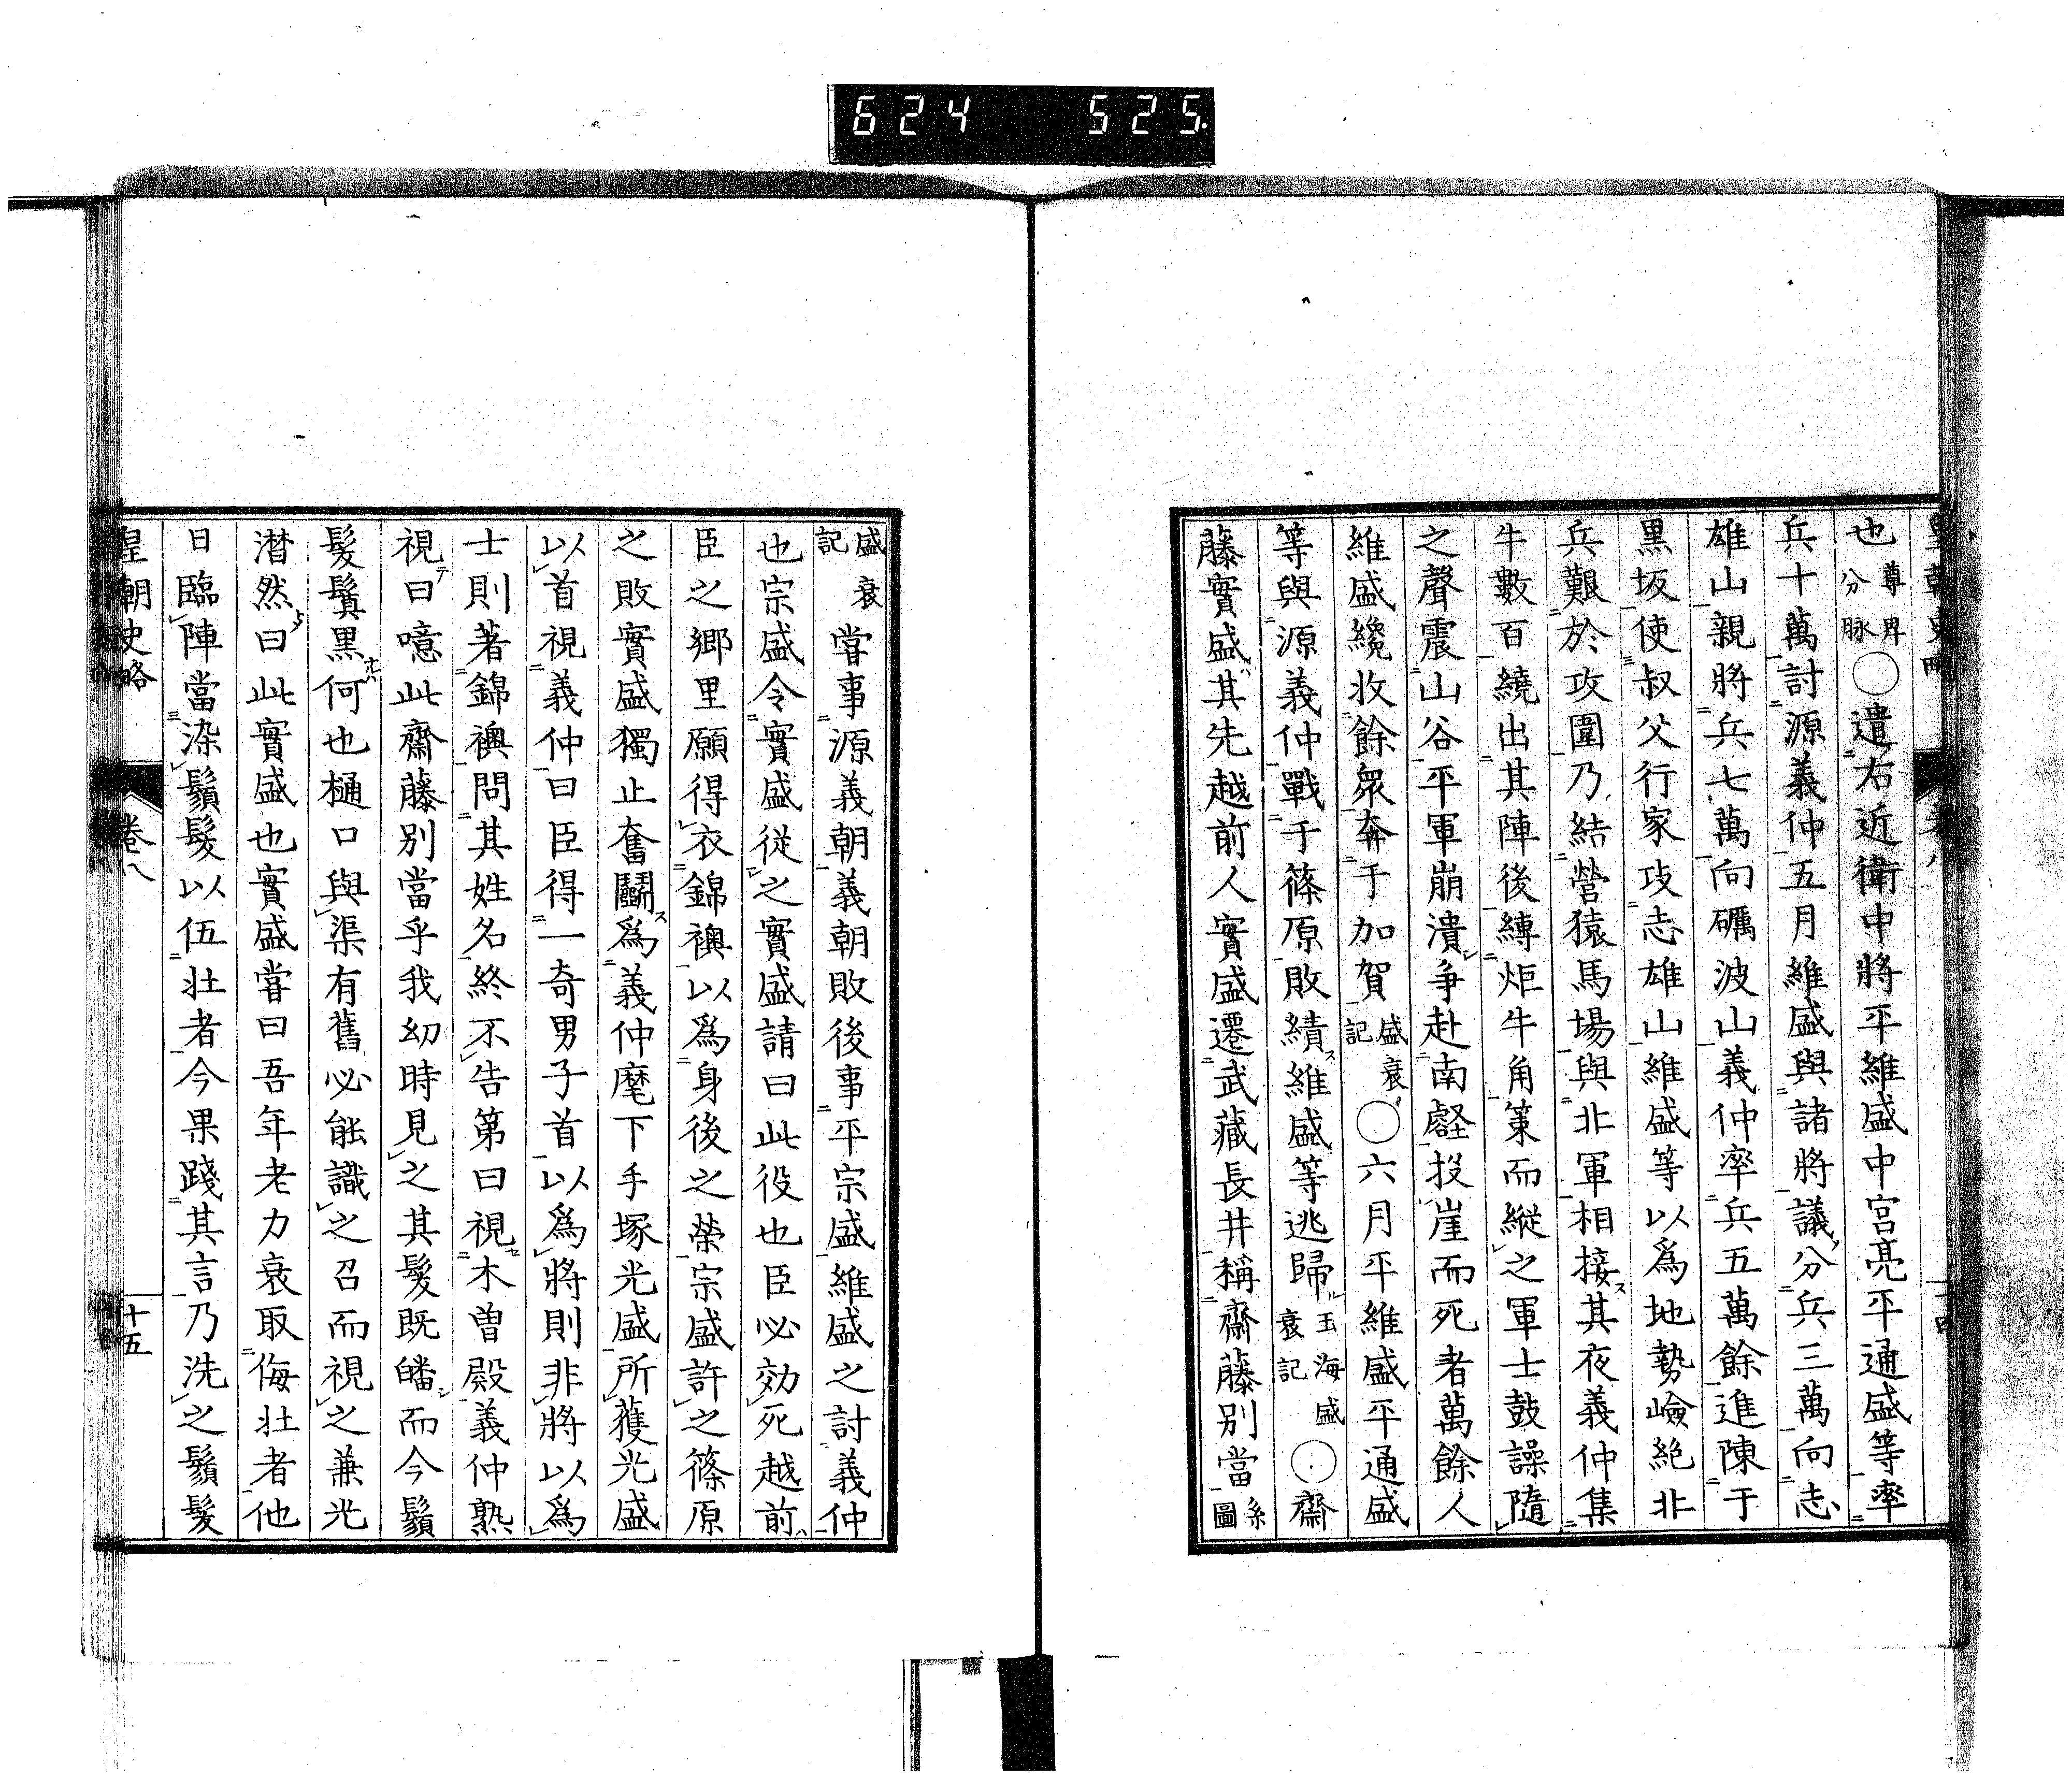 624 525.
也尊卑分脉○遣右近衛中將平維盛中宮亮平通盛等率
兵十萬討源義仲五月維盛與諸將議分兵三萬向志
雄山親將兵七萬向礪波山義仲率兵五萬餘進陳于
黒坂使叔父行家攻志雄山維盛等以爲地勢嶮絶非
兵艱於攻圍乃結營猿馬場與非軍相接其夜義仲集
牛數百繞出其陣後縛炬牛角策而縱之軍士鼓譟隨
之聲震山谷平軍崩潰爭赴南壑投崖而死者萬餘人
維盛纔收餘衆奔于加賀盛衰記○六月平維盛平通盛
等與源義仲戰于篠原敗績維盛等逃歸玉海盛衰記○齋
藤實盛其先越前人實盛遷武藏長井稱齋藤別當系圖
盛衰記嘗事源義朝義朝敗後事平宗盛維盛之討義仲
也宗盛令實盛從之實盛請曰此役也臣必効死越前
臣之郷里願得衣錦襖以爲身後之榮宗盛許之篠原
之敗實盛獨止奮鬭爲義仲麾下手塚光盛所獲光盛
以首視義仲曰臣得一奇男子首以爲將則非將以爲
士則著錦襖問其姓名終不告第曰視木曾殿義仲熟
視曰噫此齋藤別當乎我幼時見之其髮既皤而今鬚
髮鬒黒何也樋口與渠有舊必能識之召而視之兼光
潸然曰此實盛也實盛嘗曰吾年老力衰取侮壯者他
日臨陣當染鬚髮以伍壯者今果踐其言乃洗之鬚髮
皇朝史略 卷八 十五